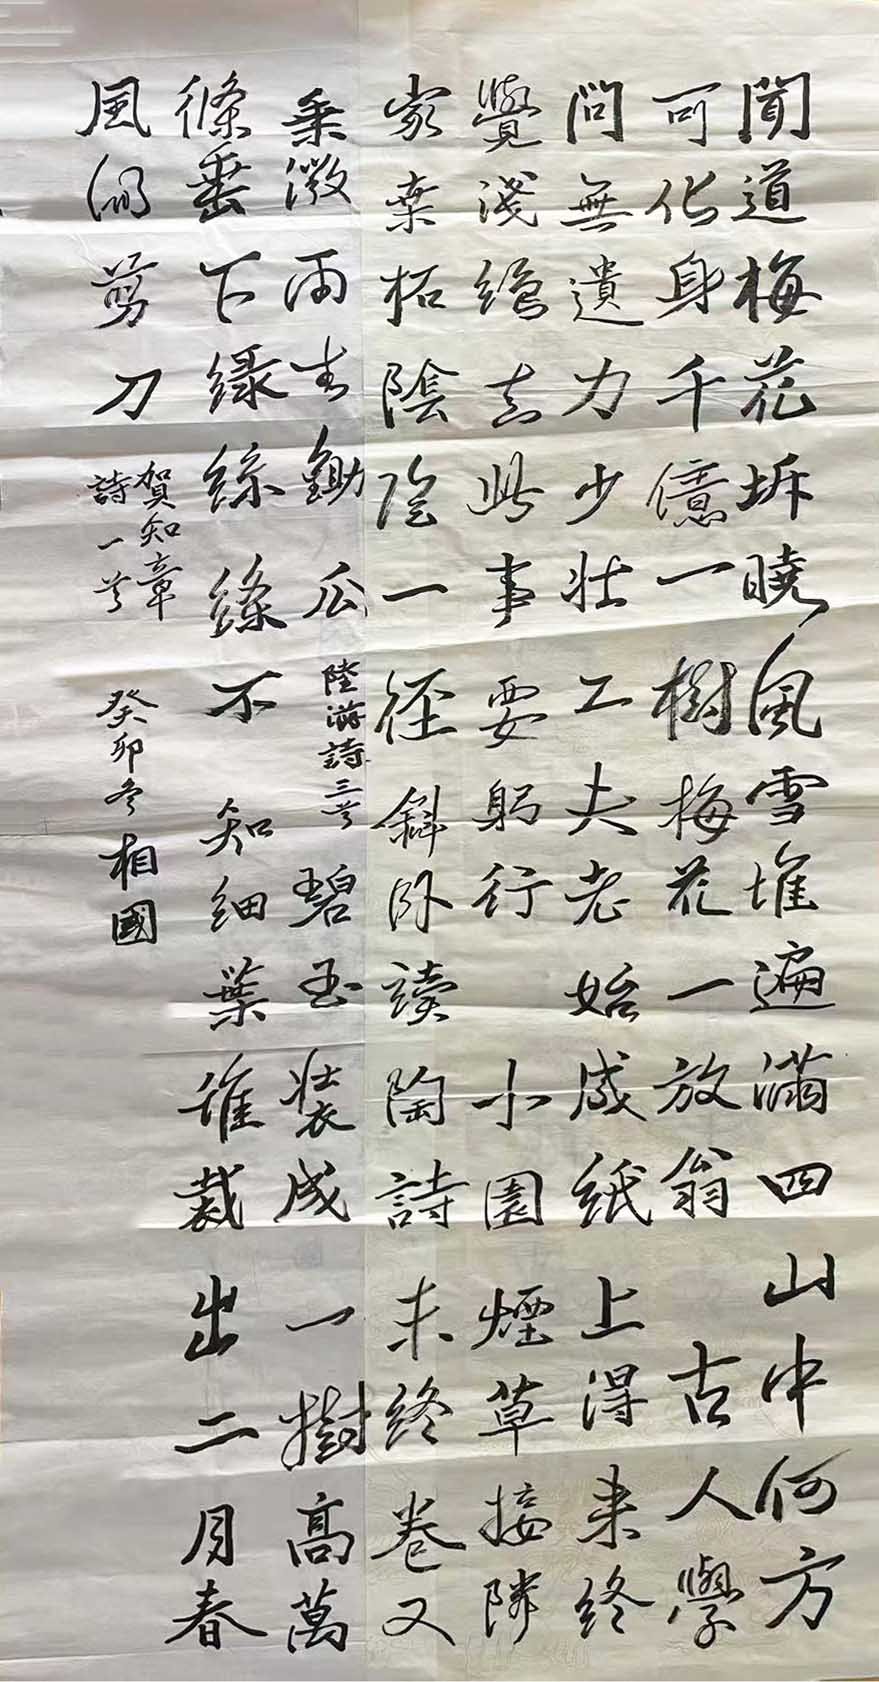 聞道梅花坼曉風雪堆遍滿四山中何方
可化身千億一樹梅花一放翁 古人學
問無遺力少壯工夫老始成紙上得來終
覺淺絕知此事要躬行 小園煙草接隣
家桑柘陰陰一徑斜臥讀陶詩未終卷又
乘微雨去鋤瓜 陸游詩三首 碧玉裝成一樹高萬
條垂下綠絲絛不知細葉誰裁出二月春
風似剪刀
賀知章
詩一首
癸卯冬相國